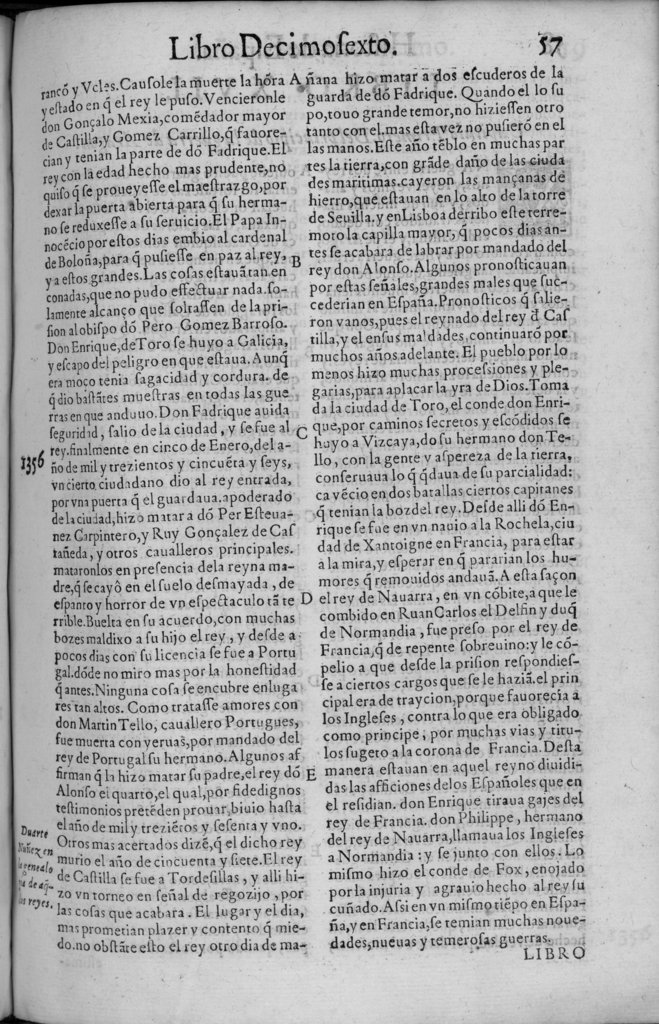 Libro Decimosexto.
57
rancõ y Vcles. Causole la muerte la hora
y estado en q̃ el rey le puso. Vencieronle
don Gonçalo Mexia, comẽdador mayor
de Castilla, y Gomez Carrillo, q̃ fauore-
cian y tenian la parte de dõ Fadrique. El
rey con la edad hecho mas prudente, no
quiso q̃ se proueyesse el maestrazgo, por
dexar la puerta abierta para q̃ su herma-
no se reduxesse a su seruicio. El Papa In-
nocẽcio por estos dias embio al cardenal
de Boloña, para q̃ pusiesse en paz al rey,
y a estos grandes. Las cosas estauã tan en
conadas, que no pudo effectuar nada. so-
lamente alcanço que soltassen de la pri-
sion al obispo dõ Pero Gomez Barroso.
Don Enrique, de Toro se huyo a Galicia,
y escapo del peligro en que estaua. Aunq̃
era moço tenia sagacidad y cordura. de
q̃ dio bastãtes muestras en todas las gue
rras en que anduuo. Don Fadrique auida
seguridad, salio de la ciudad, y se fue al
rey. finalmente en cinco de Enero, del a-
1356
ño de mil y trezientos y cincuẽta y seys,
vn cierto ciudadano dio al rey entrada,
por vna puerta q̃ el guardaua. apoderado
de la ciudad, hizo matar a dõ Per Esteua-
nez Carpintero, y Ruy Gonçalez de Cas
tañeda, y otros caualleros principales.
mataronlos en presencia dela reyna ma-
dre, q̃ se cayô en el suelo desmayada, de
espanto y horror de vn espectaculo tã te
rrible. Buelta en su acuerdo, con muchas
bozes maldixo a su hijo el rey, y desde a
pocos dias con su licencia se fue a Portu
gal. dõde no miro mas por la honestidad
q̃ antes. Ninguna cosa se encubre en luga
res tan altos. Como tratasse amores con
don Martin Tello, cauallero Portugues,
fue muerta con yeruas, por mandado del
rey de Portugal su hermano. Algunos af
firman q̃ la hizo matar su padre, el rey dõ
Alonso el quarto, el qual, por fidedignos
testimonios pretẽden prouar, biuio hasta
el año de mil y treziẽtos y sesenta y vno.
Duarte
Nuñez en
la genealo
gia de aq̃-
llos reyes.
Otros mas acertados dizẽ, q̃ el dicho rey
murio el año de cincuenta y siete. El rey
de Castilla se fue a Tordesillas, y alli hi-
zo vn torneo en señal de regozijo, por
las cosas que acabara. El lugar y el dia,
mas prometian plazer y contento q̃ mie-
do. no obstãte esto el rey otro dia de ma-
A
B
C
D
E
ñana hizo matar a dos escuderos de la
guarda de dõ Fadrique. Quando el lo su
po, touo grande temor, no hiziessen otro
tanto con el. mas esta vez no pusierõ en el
las manos. Este año tẽblo en muchas par
tes la tierra, con grãde daño de las ciuda
des maritimas. cayeron las mançanas de
hierro, que estauan en lo alto de la torre
de Seuilla. y en Lisboa derribo este terre-
moto la capilla mayor, q̃ pocos dias an-
tes se acabara de labrar por mandado del
rey don Alonso. Algunos pronosticauan
por estas señales, grandes males que suc-
cederian en España. Pronosticos q̃ salie-
ron vanos, pues el reynado del rey d̃ Cas
tilla, y el en sus maldades, continuarõ por
muchos años adelante. El pueblo por lo
menos hizo muchas processiones y ple-
garias, para aplacar la yra de Dios. Toma
da la ciudad de Toro, el conde don Enri-
que, por caminos secretos y escõdidos se
huyo a Vizcaya, do su hermano don Te-
llo, con la gente y aspereza de la tierra,
conseruaua lo q̃ q̃daua de su parcialidad:
ca vẽcio en dos batallas ciertos capitanes
q̃ tenian la boz del rey. Desde alli dõ En-
rique se fue en vn nauio a la Rochela, ciu
dad de Xantoigne en Francia, para estar
a la mira, y esperar en q̃ pararian los hu-
mores q̃ remouidos andauã. A esta saçon
el rey de Nauarra, en vn cõbite, a que le
combido en Ruan Carlos el Delfin y duq̃
de Normandia, fue preso por el rey de
Francia, q̃ de repente sobreuino: y le cõ-
pelio a que desde la prision respondies-
se a ciertos cargos que se le haziã. el prin
cipal era de traycion, porque fauorecia a
los Ingleses, contra lo que era obligado
como principe, por muchas vias y titu-
los sugeto a la corona de Francia. Desta
manera estauan en aquel reyno diuidi-
das las afficiones delos Españoles que en
el residian. don Enrique tiraua gajes del
rey de Francia. don Philippe, hermano
del rey de Nauarra, llamaua los Ingleses
a Normandia: y se junto con ellos. Lo
mismo hizo el conde de Fox, enojado
por la injuria y agrauio hecho al rey su
cuñado. Assi en vn mismo tiẽpo en Espa-
ña, y en Francia, se temian muchas noue-
dades, nueuas y temerosas guerras.
LIBRO